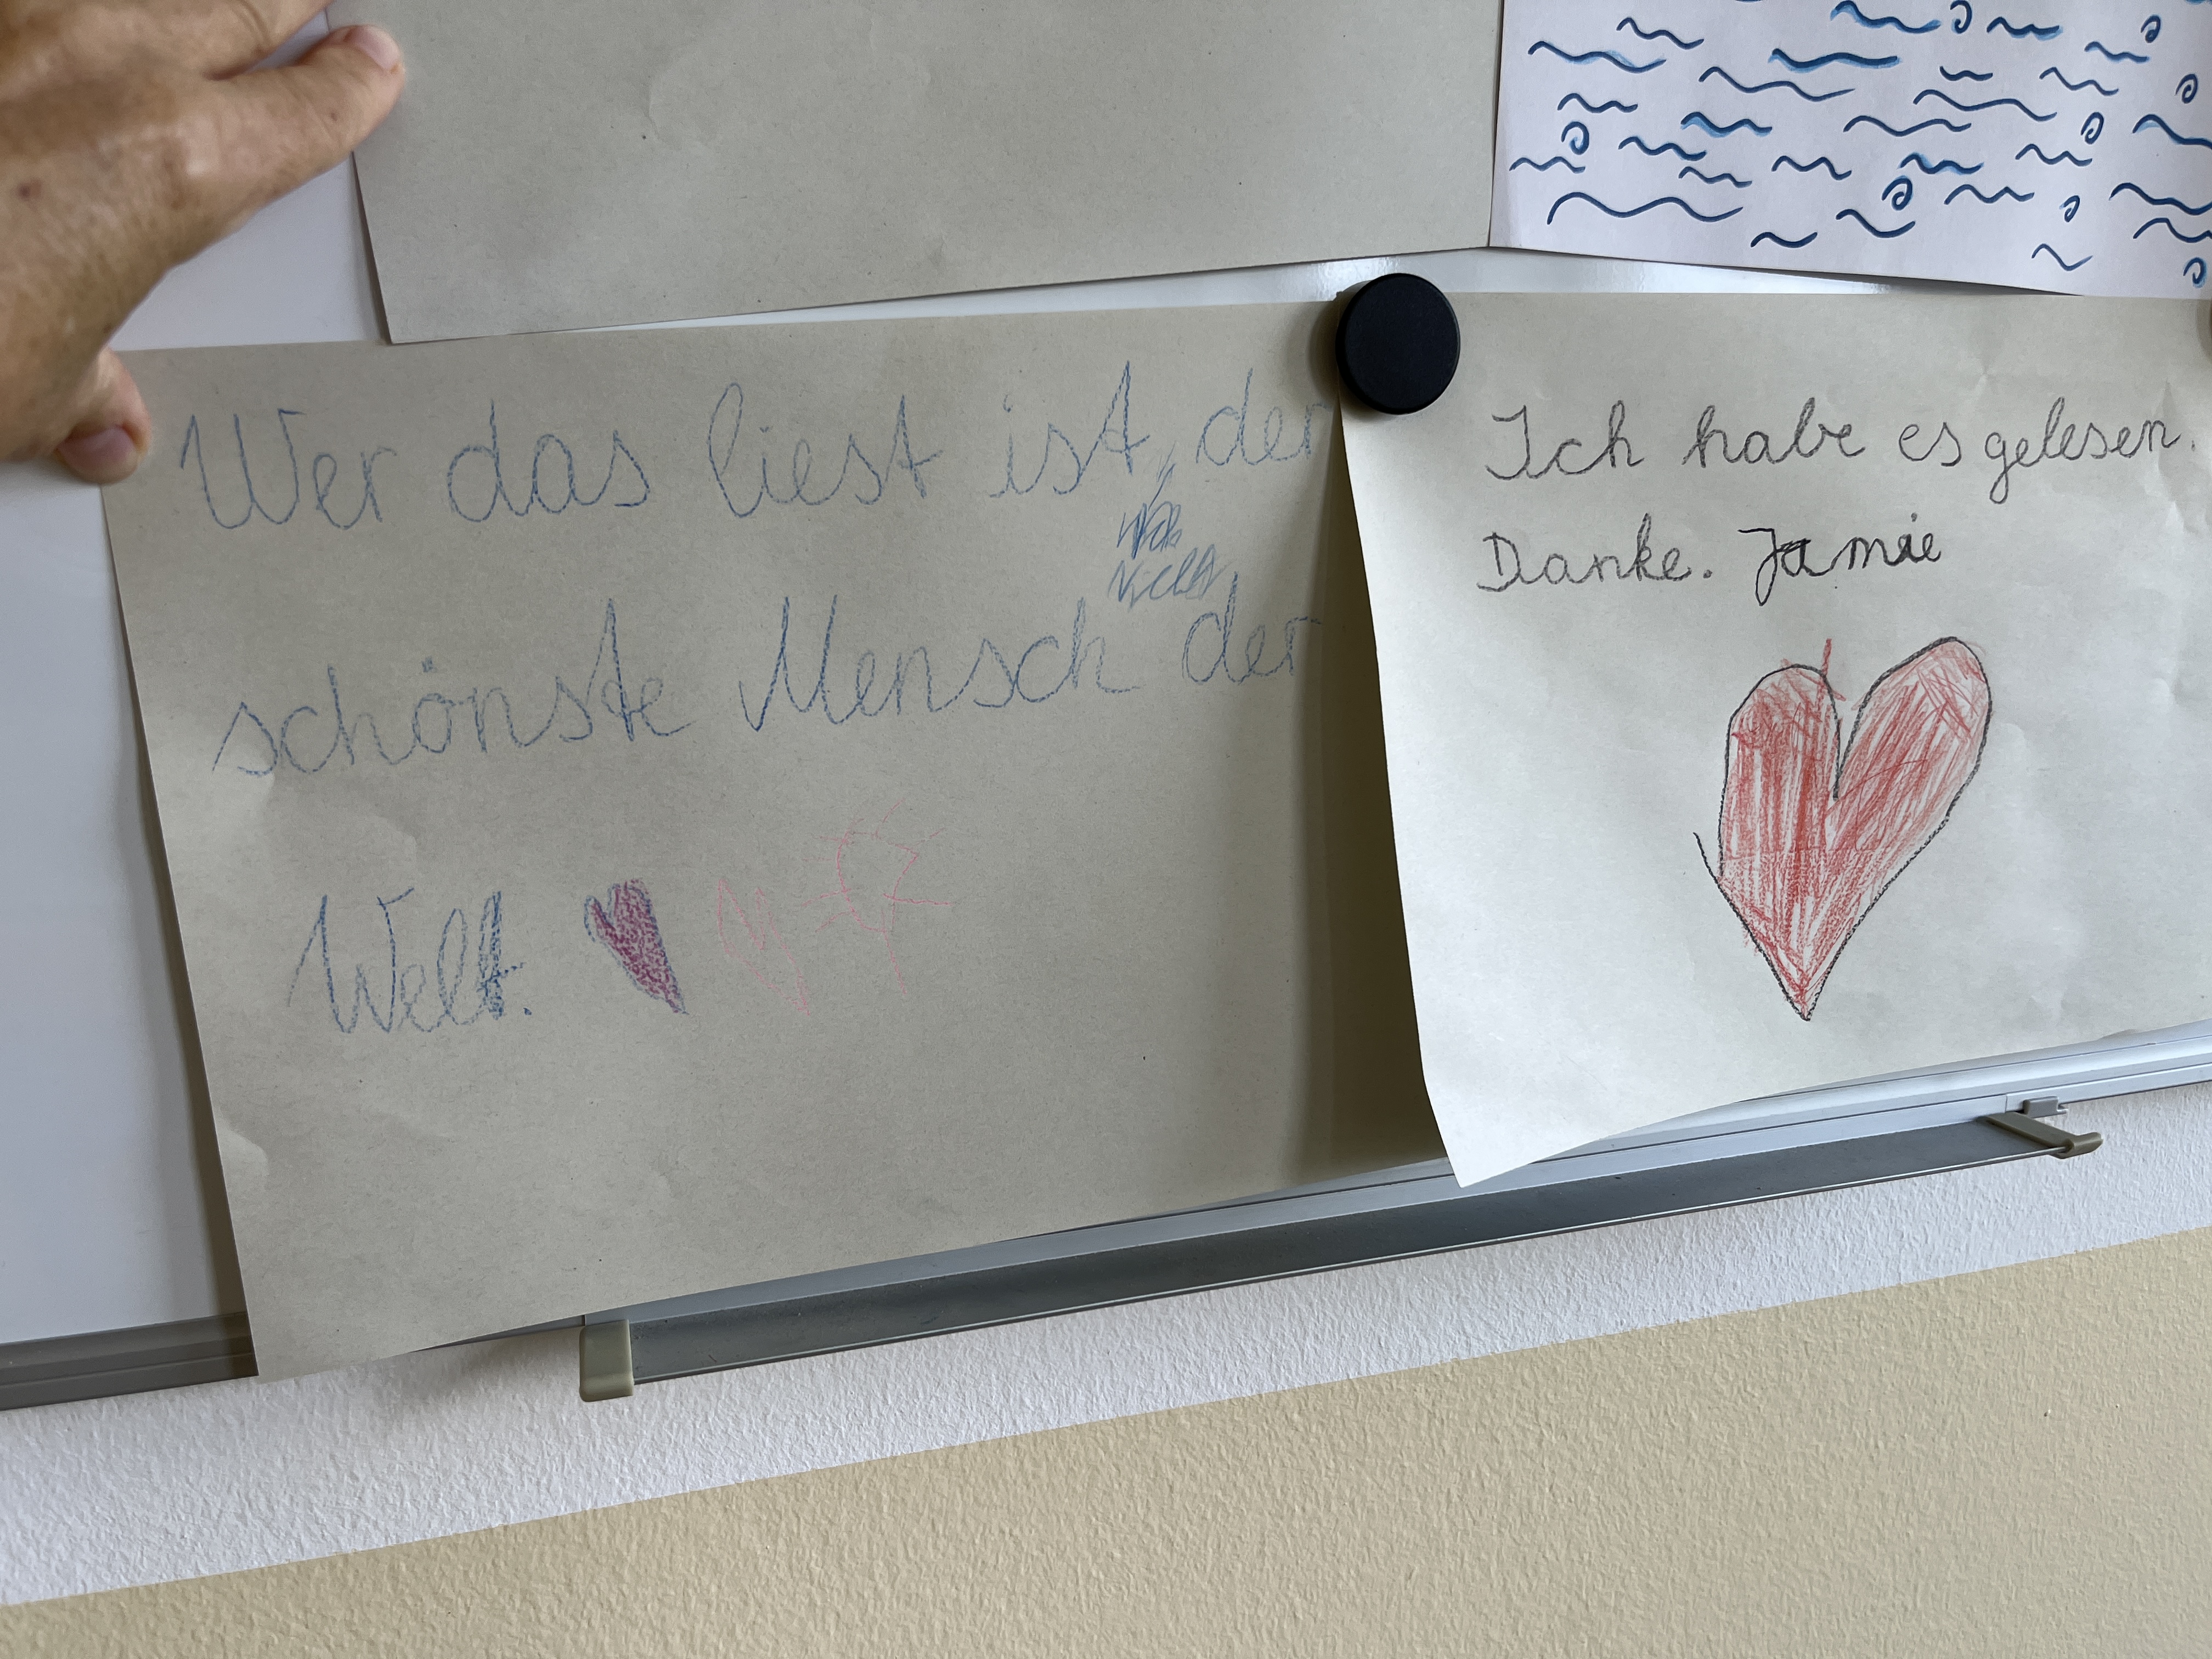 Wer das liest ist der
nicht
schönste Mensch der
Welt.
Ich habe es gelesen.
Danke. Jamie